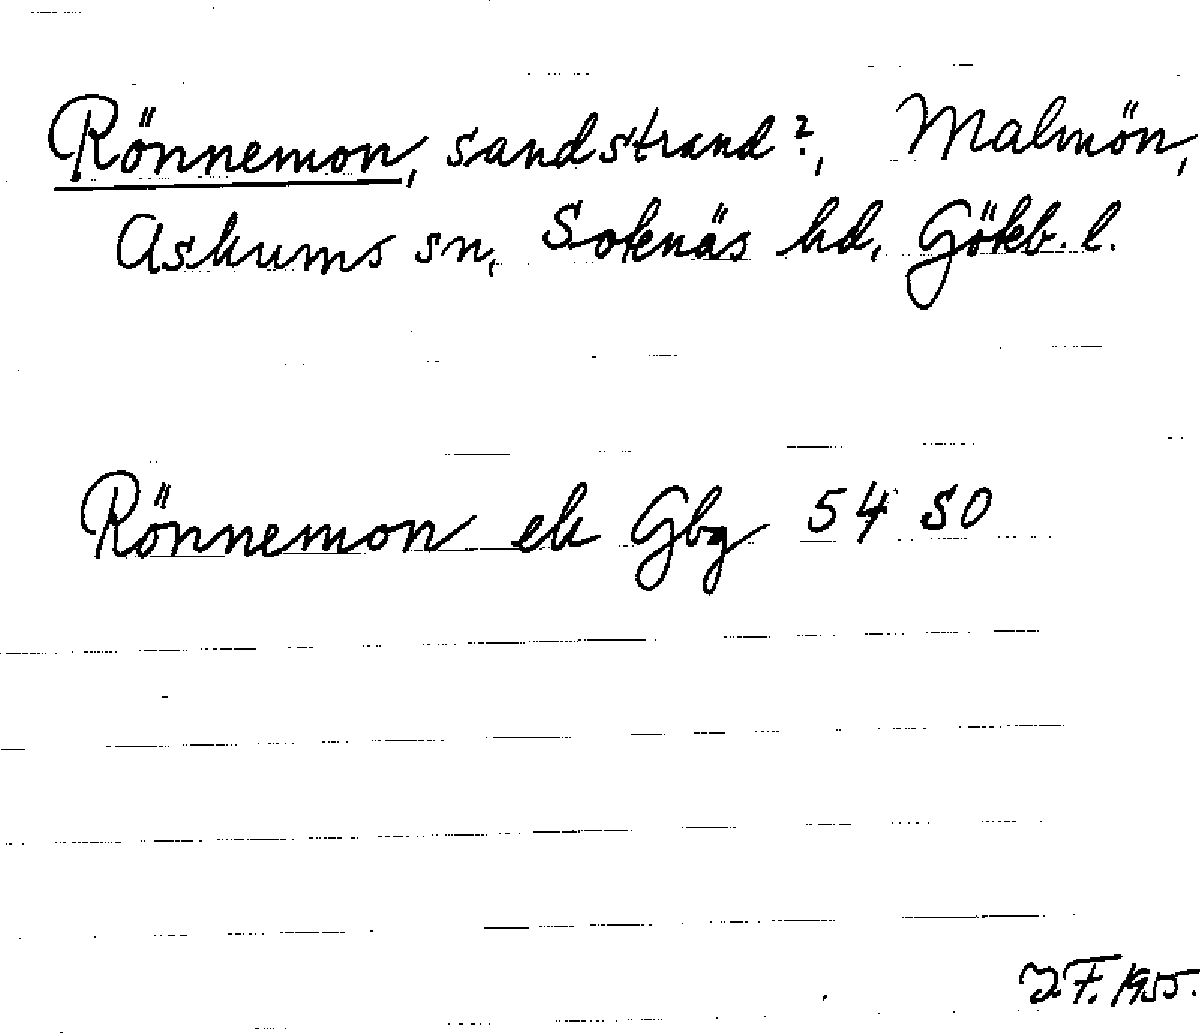 Rönnemon, sandstrand?, Malmön,
Askums sn, Sotenäs hd, Götebr. l.
Rönnemon ek Gbg 54 SO
I.F. 1955.